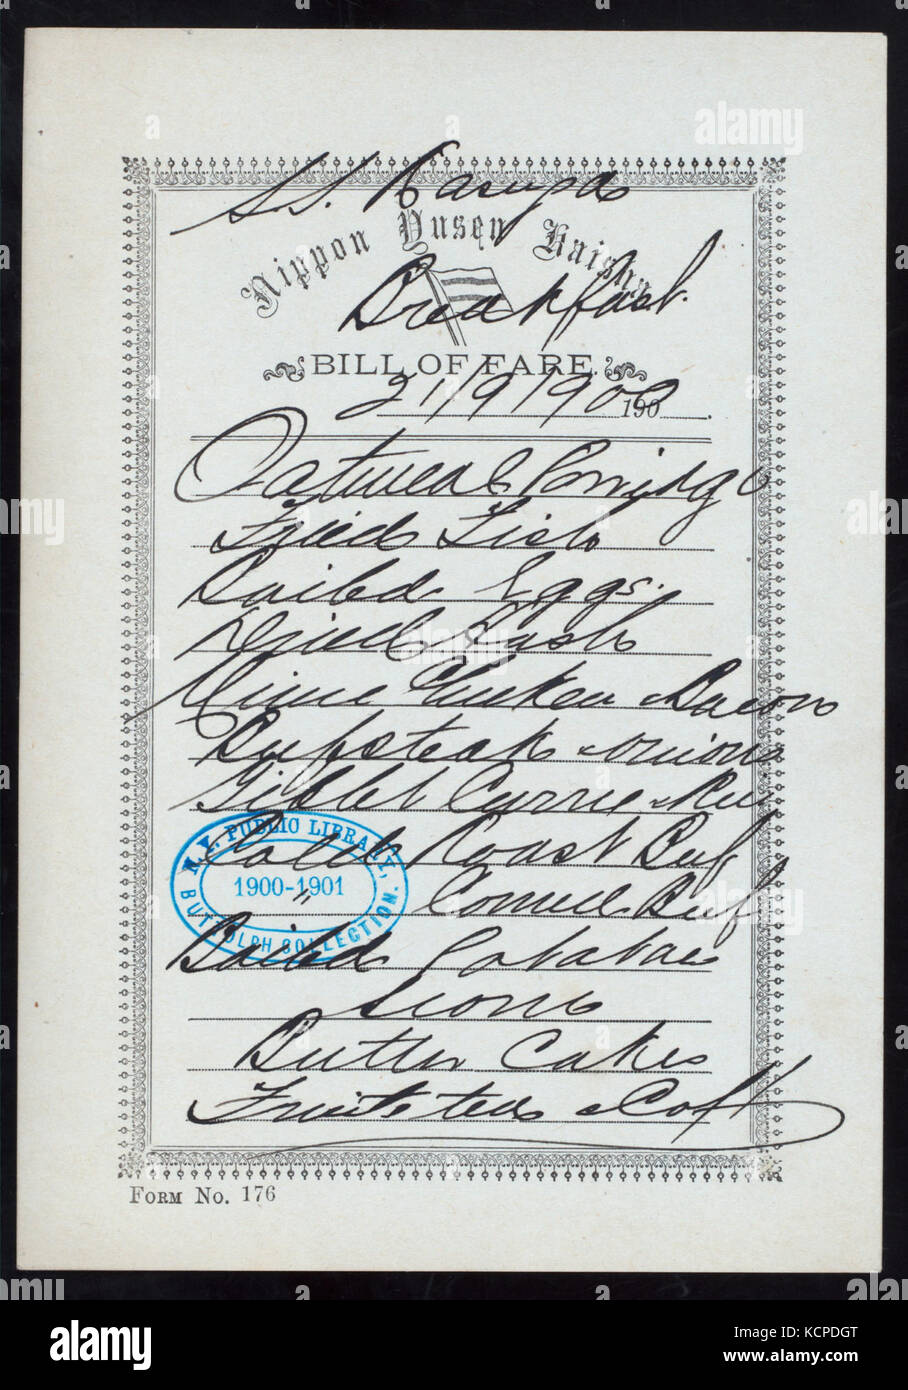 S.S. Kasuga
Nippon Yusen Kaisha
Breakfast.
BILL OF FARE.
21/9/1900 190
Oatmeal Porridge
Fried Fish
Boiled Eggs.
Dried Hash
Mince Chicken & Bacon
Rumpsteak & onions
Giblet Currie & Rice
Cold Roast Beef
" Corned Beef
N.Y. PUBLIC LIBRARY,
1900-1901
BUTTOLPH COLLECTION.
Boiled Potatoes
Scones
Butter Cakes
Fruits tea & Coff
FORM No. 176
alamy
Image ID: KCPDGT
www.alamy.com